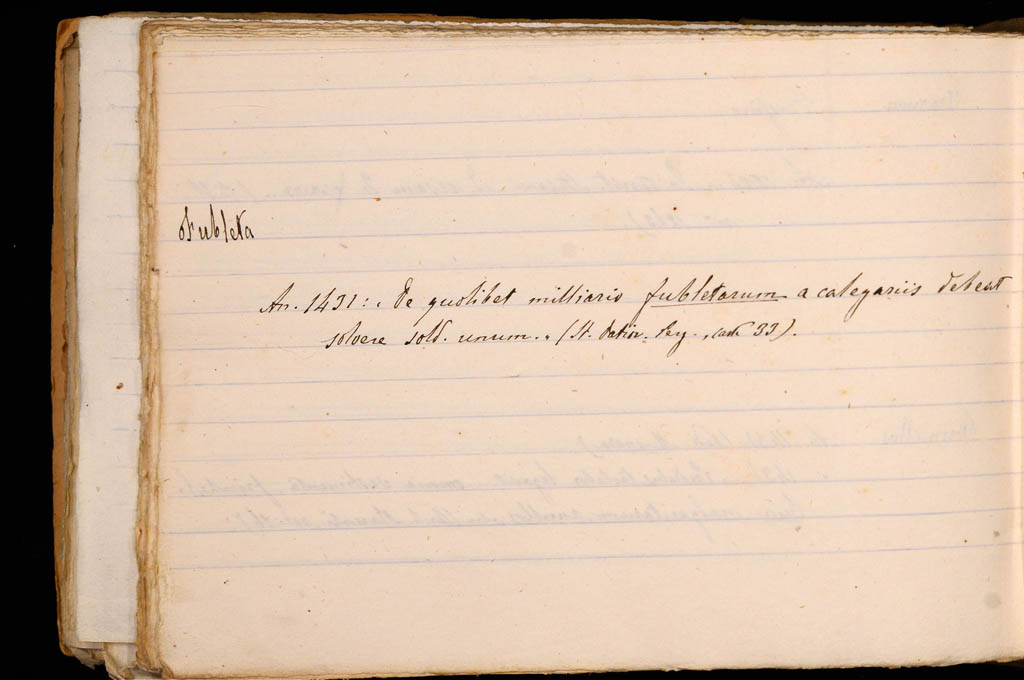 Fubleta
An. 1431: „ De quolibet milliario fubletarum a calegariis debeat
solvere sold. unum. „ ( St. Datior. Reg. , cart. 33 ).